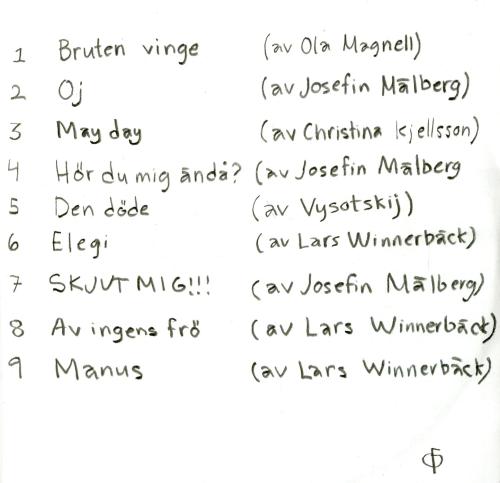 1 Bruten vinge (av Ola Magnell)
2 Oj (av Josefin Målberg)
3 May day (av Christina Kjellsson)
4 Hör du mig ändå? (av Josefin Målberg
5 Den döde (av Vysotskij)
6 Elegi (av Lars Winnerbäck)
7 SKJUT MIG!!! (av Josefin Målberg)
8 Av ingens frö (av Lars Winnerbäck)
9 Manus (av Lars Winnerbäck)